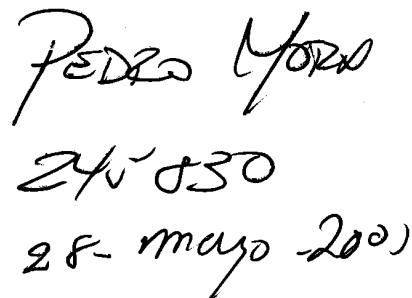 PEDRO
245830
28- mayo -2001